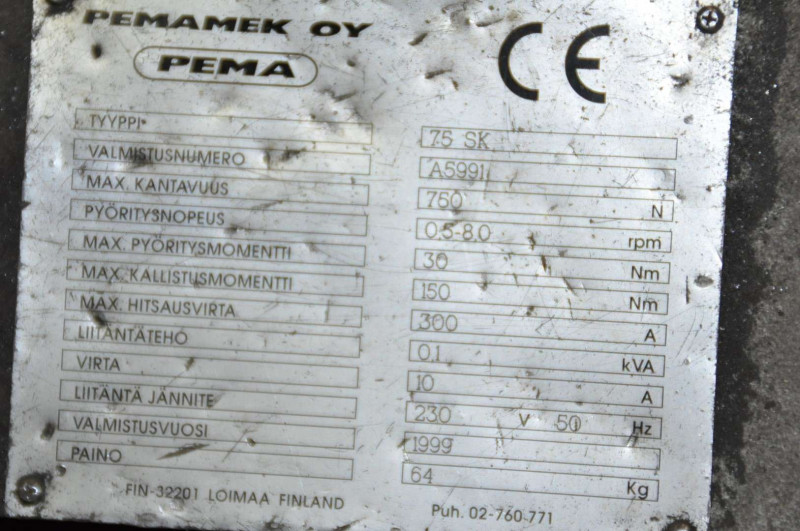 PEMAMEK OY
PEMA
CE
TYYPPI 75 SK
VALMISTUSNUMERO A5991
MAX. KANTAVUUS 750 N
PYÖRITYSNOPEUS 0,5-8,0 rpm
MAX. PYÖRITYSMOMENTTI 30 Nm
MAX. KALLISTUSMOMENTTI 150 Nm
MAX. HITSAUSVIRTA 300 A
LIITÄNTÄTEHO 0,1 kVA
VIRTA 10 A
LIITÄNTÄ JÄNNITE 230 V 50 Hz
VALMISTUSVUOSI 1999
PAINO 64 Kg
FIN-32201 LOIMAA FINLAND Puh. 02-760 771